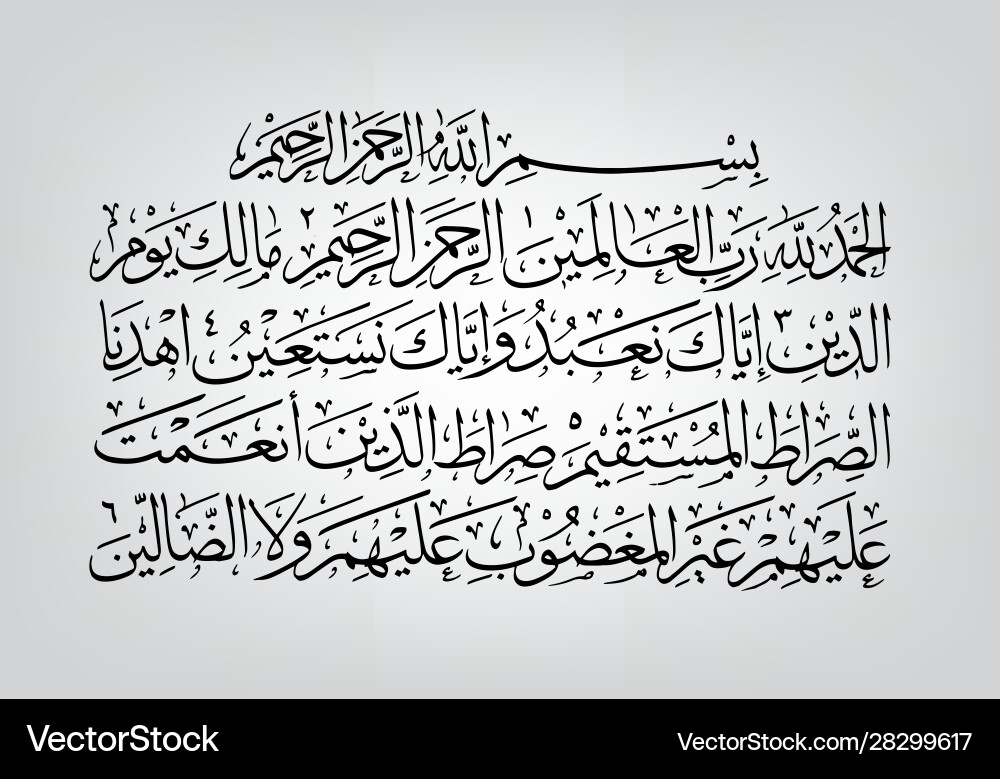 بِسْمِ اللَّهِ الرَّحْمَنِ الرَّحِيمِ
الْحَمْدُ لِلَّهِ رَبِّ الْعَالَمِينَ ١ الرَّحْمَنِ الرَّحِيمِ ٢ مَالِكِ يَوْمِ
الدِّيْنِ ٣ إِيَّاكَ نَعْبُدُ وَإِيَّاكَ نَسْتَعِيْنُ ٤ اهْدِنَا
الصِّرَاطَ الْمُسْتَقِيْمَ ٥ صِرَاطَ الَّذِيْنَ أَنْعَمْتَ
عَلَيْهِمْ غَيْرِ الْمَغْضُوْبِ عَلَيْهِمْ وَلَا الضَّالِّيْنَ ٦
VectorStock VectorStock.com/28299617